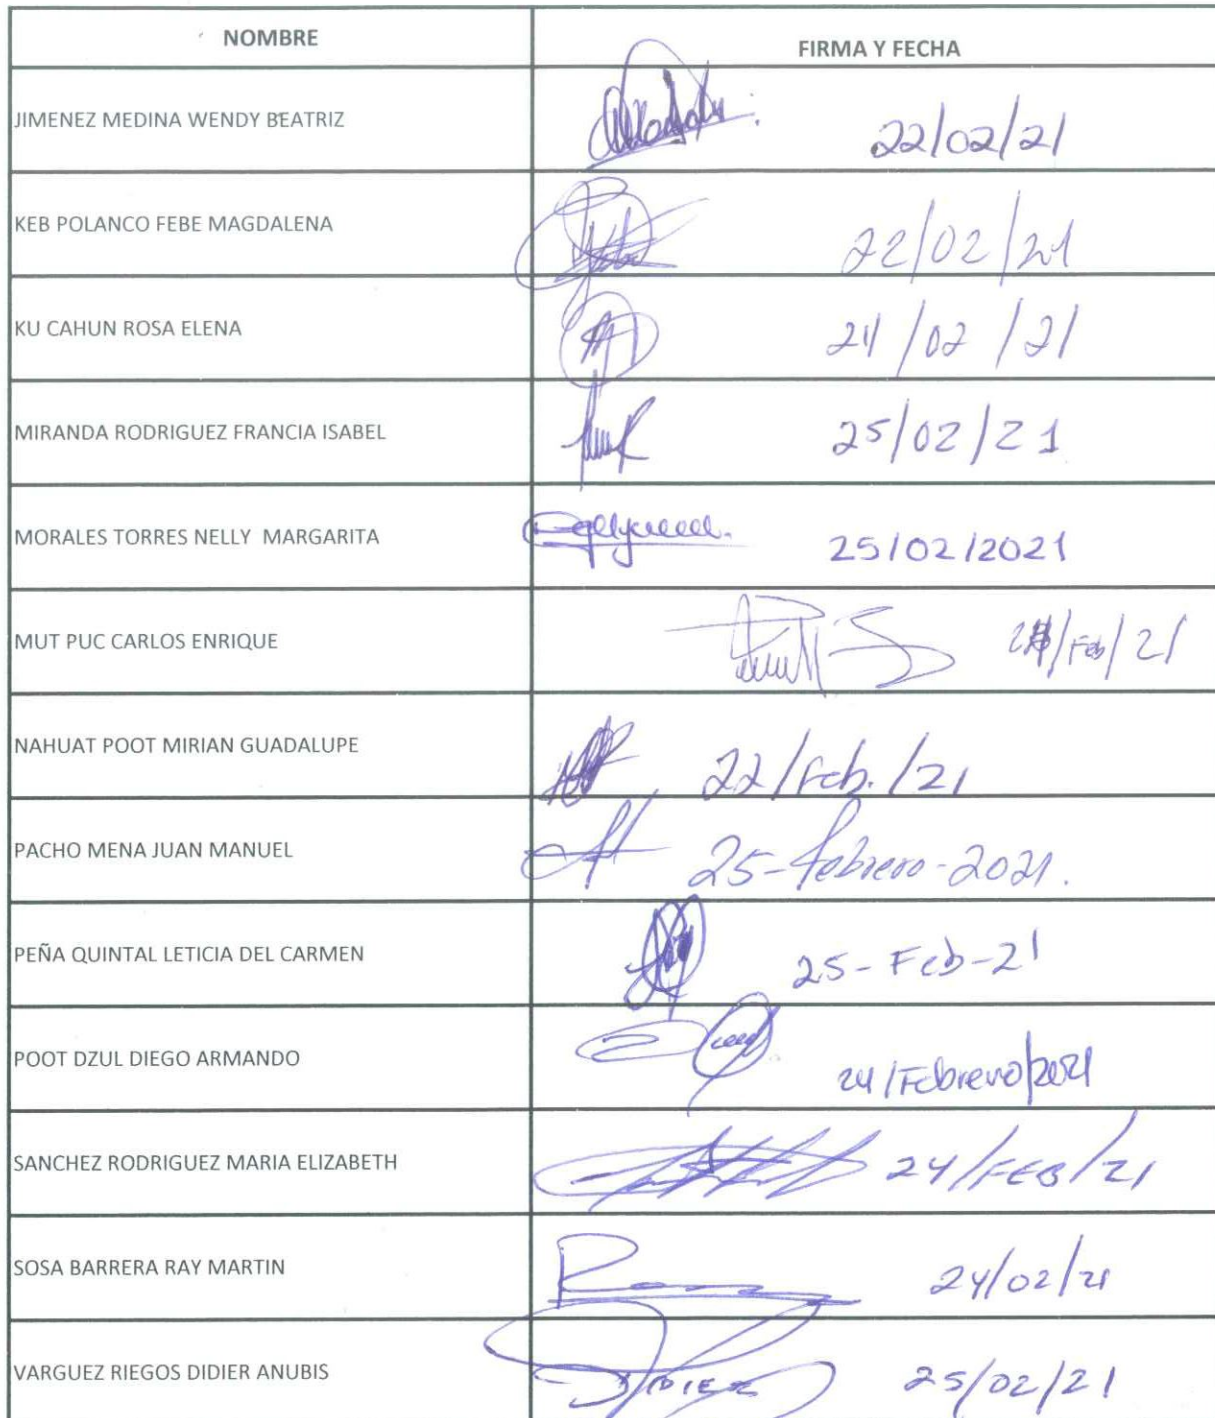 NOMBRE FIRMA Y FECHA
JIMENEZ MEDINA WENDY BEATRIZ 22/02/21
KEB POLANCO FEBE MAGDALENA 22/02/21
KU CAHUN ROSA ELENA 24/02/21
MIRANDA RODRIGUEZ FRANCIA ISABEL 25/02/21
MORALES TORRES NELLY MARGARITA 25/02/2021
MUT PUC CARLOS ENRIQUE /Feb/21
NAHUAT POOT MIRIAN GUADALUPE 22/Feb./21
PACHO MENA JUAN MANUEL 25-febrero-2021.
PEÑA QUINTAL LETICIA DEL CARMEN 25-Feb-21
POOT DZUL DIEGO ARMANDO 24/Febrero/2021
SANCHEZ RODRIGUEZ MARIA ELIZABETH 24/FEB/21
SOSA BARRERA RAY MARTIN 24/02/21
VARGUEZ RIEGOS DIDIER ANUBIS DIDIER 25/02/21